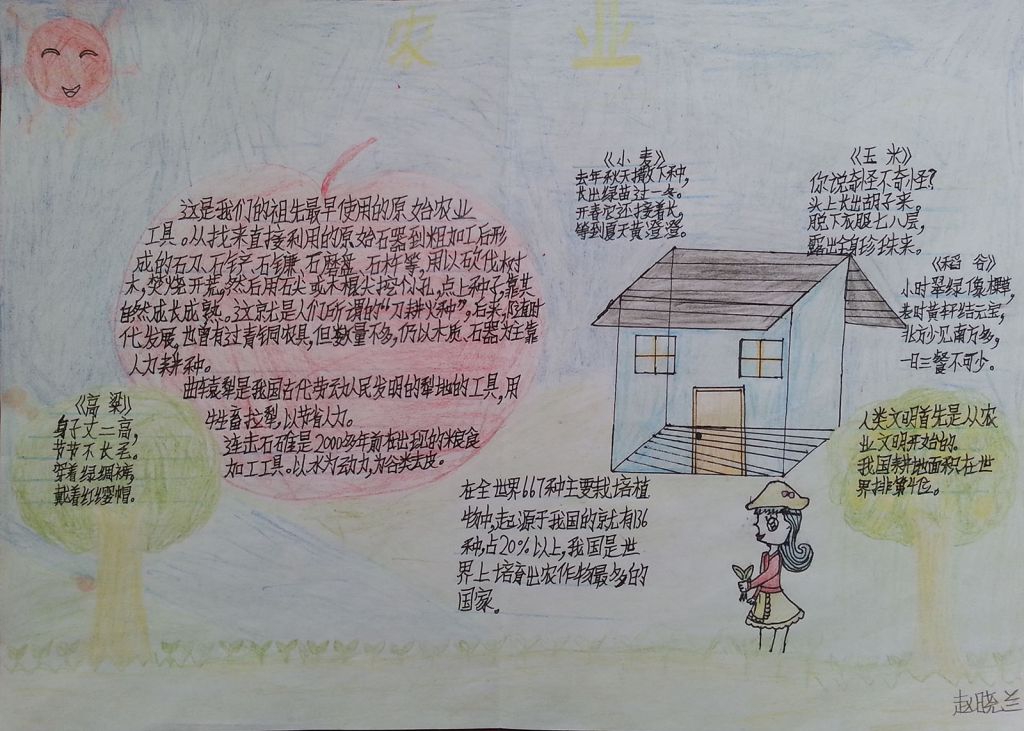 农业
这是我们的祖先最早使用的原始农业
工具。从找来直接利用的原始石器到粗加工后形
成的石刀、石铲、石镰、石磨盘、石杵等,用以砍伐树
木,焚烧开荒,然后用石头或木棍尖挖个小孔,点上种子,靠其
自然成长成熟。这就是人们所谓的“刀耕火种”,后来,随着时
代发展,也曾有过青铜农具,但数量不多,仍以木质、石器为主靠
人力耕种。
曲辕犁是我国古代劳动人民发明的犁地的工具,用
牲畜拉犁,以节省人力。
连击石碓是2000多年前有出现的粮食
加工工具。以水为动力,为谷类去皮。
《小麦》
去年秋天撒下种,
长出绿苗过一冬。
开春它还接着长,
等到夏天黄澄澄。
《玉米》
你说奇怪不奇怪?
头上长出胡子来,
脱下衣服七八层,
露出全身珍珠来。
《稻谷》
小时翠绿像棵草,
老时黄籽结元宝,
北方少见南方多,
一日三餐不可少。
《高粱》
身子丈二高,
节节不长毛。
穿着绿绸裤,
戴着红缨帽。
人类文明首先是从农
业文明开始的。
我国耕地面积在世
界排第4位。
在全世界667种主要栽培植
物中,起源于我国的就有136
种,占20%以上,我国是世
界上培育出农作物最多的
国家。
赵晓兰